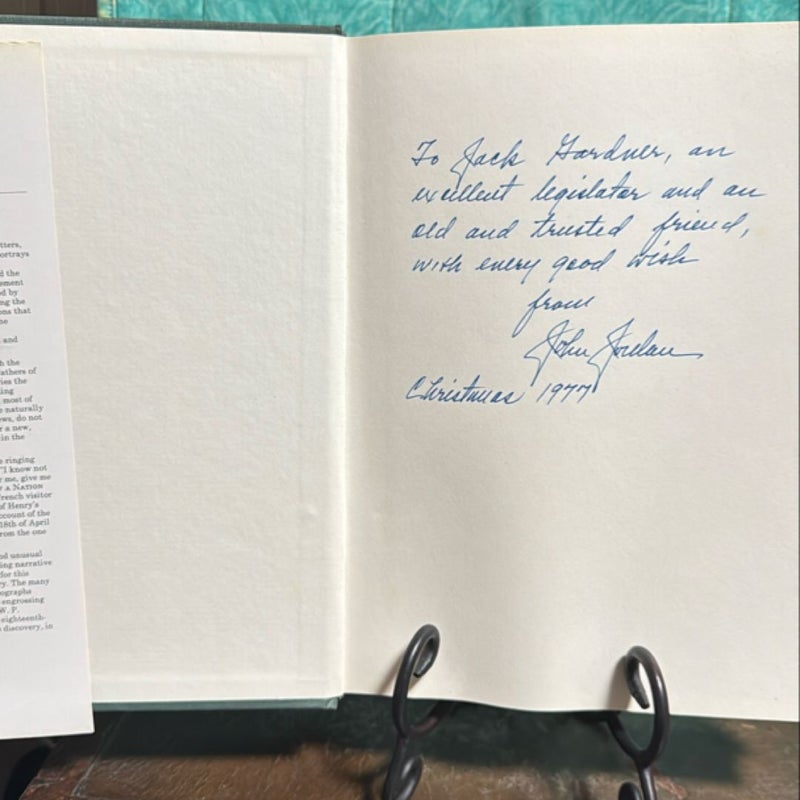 tters,
ortrays
d the
ement
d by
ng the
ons that
he
and
h the
athers of
ries the
ing
most of
e naturally
ews, do not
r a new,
in the
e ringing
"I know not
r me, give me
F A NATION
rench visitor
of Henry's
ccount of the
18th of April
rom the one
nd unusual
ing narrative
for this
ry. The many
ographs
engrossing
W. P.
eighteenth-
discovery, in
To Jack Gardner, an
excellent legislator and an
old and trusted friend,
with every good wish
from
John Jordan
Christmas 1977